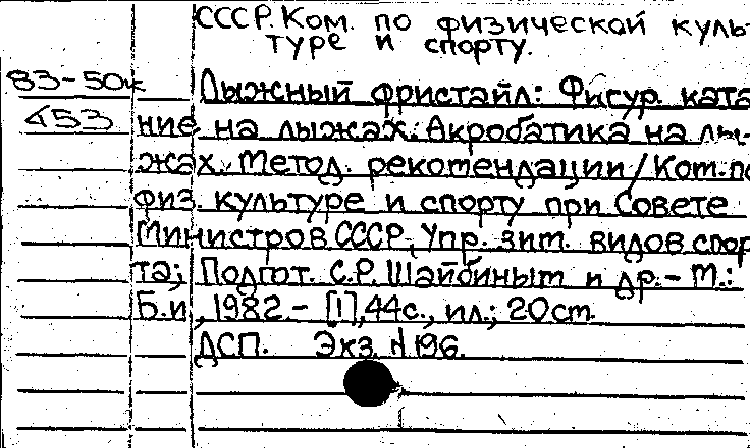 СССР. Ком. по физической куль-
туре и спорту.
83-50к Лыжный фристайл: Фигур. ката-
453 ние на лыжах. Акробатика на лы-
жах. Метод. рекомендации / Ком. по
физ. культуре и спорту при Совете
Министров СССР, Упр. зим. видов спор-
та; Подгот. С.Р. Шайбиным и др. - М.:
Б.и., 1982. - [1], 44 с., ил.; 20 см.
ДСП. Экз. № 196.